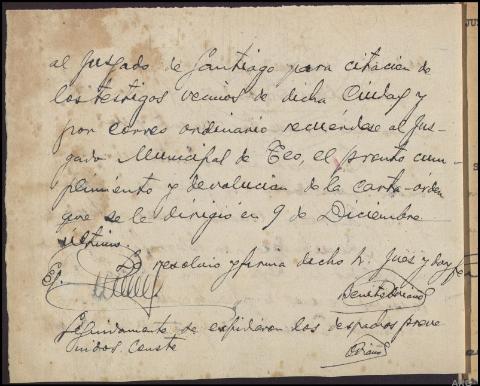 al Juzgado de Santiago para citación de
los testigos vecinos de dicha Ciudad y
por correo ordinario recuérdese al Juz-
gado Municipal de Teo, el pronto cum-
plimiento y devolución de la carta-orden
que se le dirigió en 9 de Diciembre
último.
Lo resolvió y firma dicho Sr. Juez y doy fe
Seguidamente se expidieron los despachos preve
nidos. conste